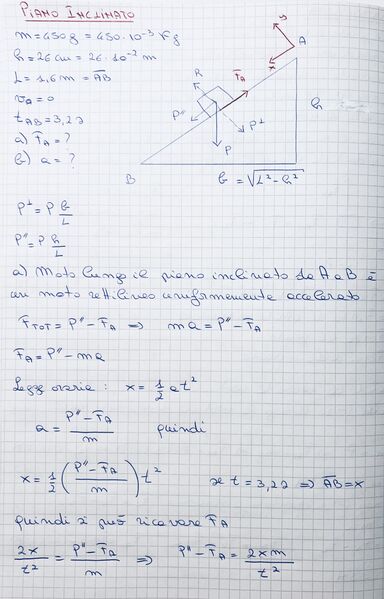 PIANO INCLINATO
m = 450g = 450·10⁻³ Kg
h = 26 cm = 26·10⁻² m
L = 1,6 m = AB
v_A = 0
t_AB = 3,2 s
a) F_A = ?
b) a = ?
y
A
x
R
F_A
P″
P⊥
P
h
B
b = √(L² - h²)
P⊥ = P b/L
P″ = P h/L
a) Moto lungo il piano inclinato da A a B è
un moto rettilineo uniformemente accelerato
F_TOT = P″ - F_A ⇒ ma = P″ - F_A
F_A = P″ - ma
Legge oraria: x = 1/2 at²
a = (P″ - F_A)/m quindi
x = 1/2 ((P″ - F_A)/m) t² se t = 3,2 s ⇒ AB = x
quindi si può ricavare F_A
2x/t² = (P″ - F_A)/m ⇒ P″ - F_A = 2xm/t²